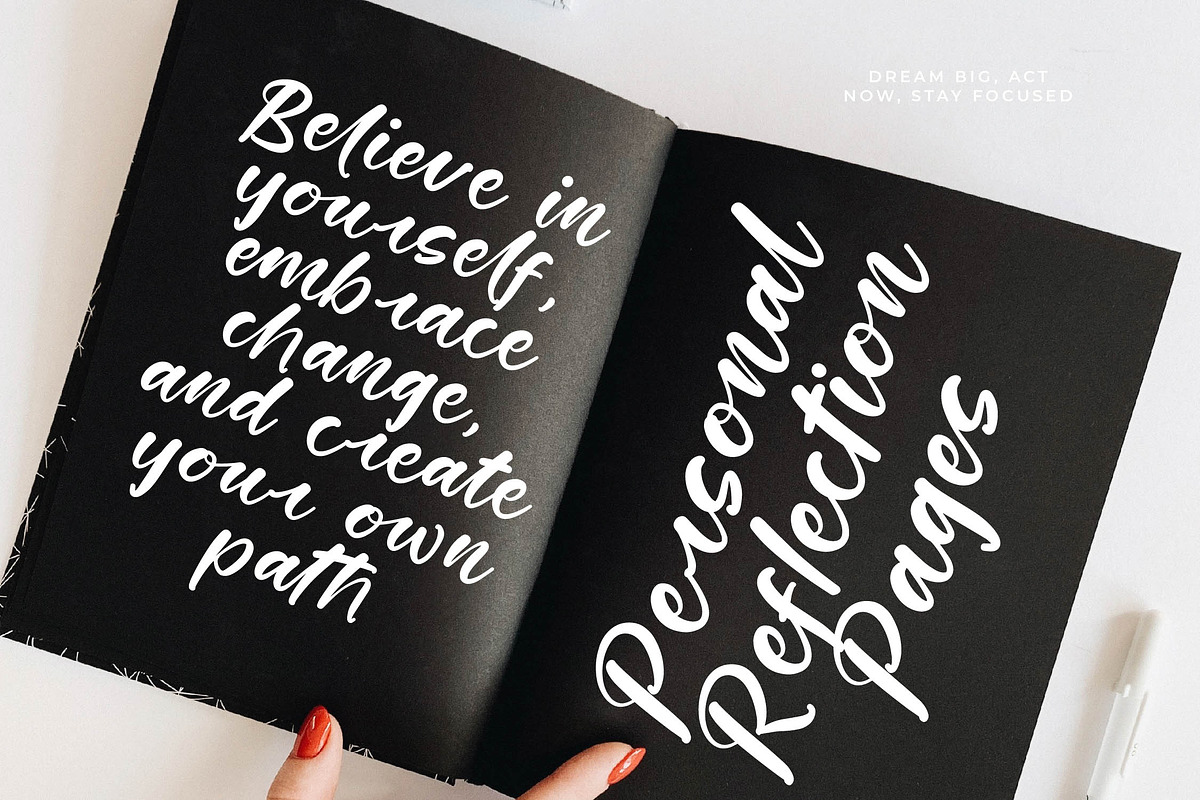 Believe in
yourself,
embrace
change,
and create
your own
path
DREAM BIG, ACT
NOW, STAY FOCUSED
Personal
Reflection
Pages